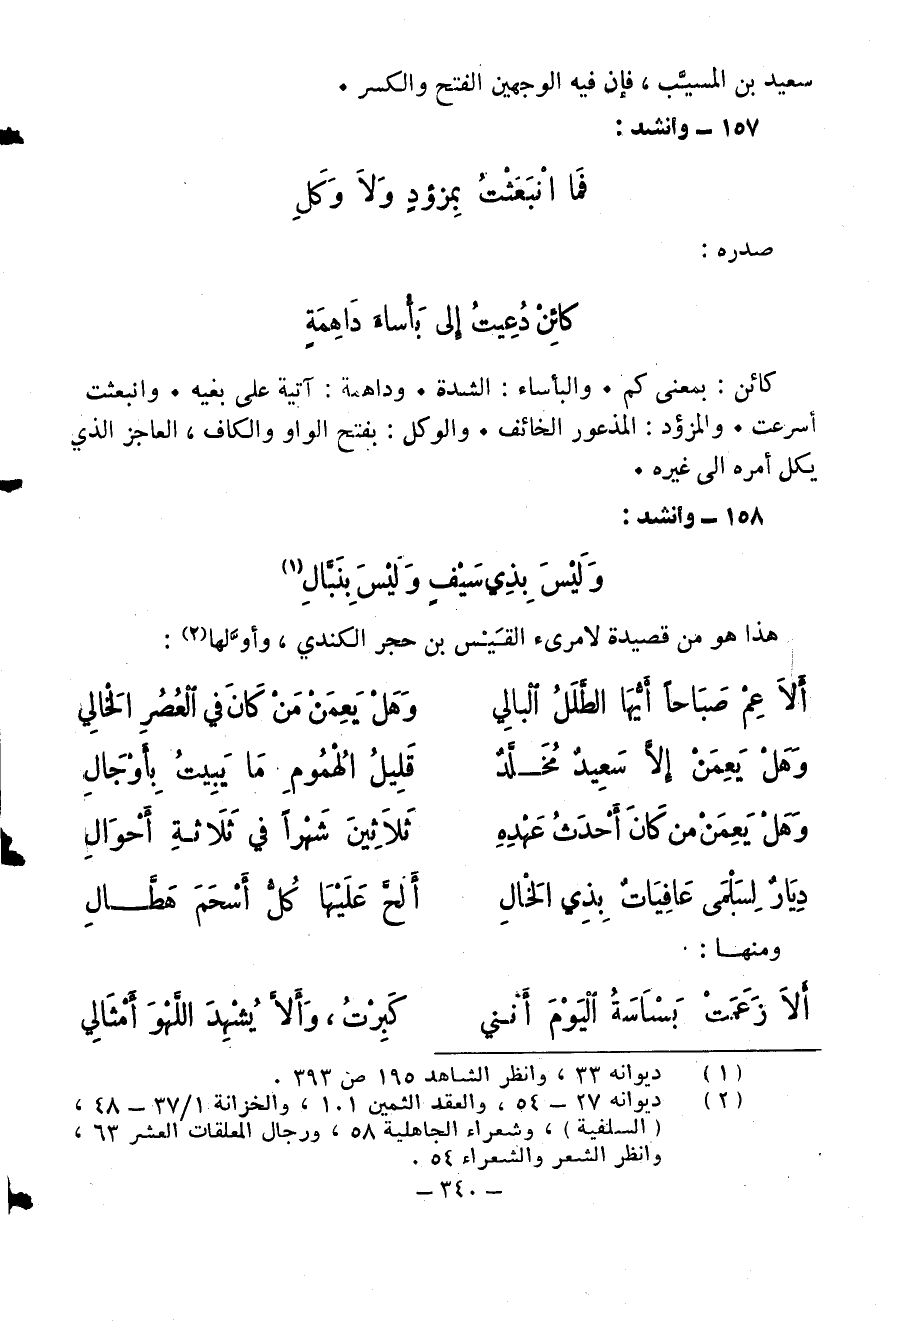 سعيد بن المسيَّب ، فإن فيه الوجهين الفتح والكسر .
١٥٧ ــ وأنشد :
فَمَا انْبَعَثْتُ بِمزؤدٍ وَلاَ وَكَلِ
صدره :
كائِنْ دُعِيتُ إلى بَأْساءَ دَاهِمَةٍ
كائن : بمعنى كم . والبأساء : الشدة . وداهمة : آتية على بغيه . وانبعثت
أسرعت . والمزؤد : المذعور الخائف . والوكل : بفتح الواو والكاف ، العاجز الذي
يكل أمره الى غيره .
١٥٨ ــ وأنشد :
وَلَيْسَ بِذِي سَيْفٍ وَلَيْسَ بِنَبَّالِ (١)
هذا هو من قصيدة لامرىء القَيْس بن حجر الكندي ، وأوَّلها(٢) :
أَلاَ عِمْ صَبَاحاً أَيُّهَا الطَّلَلُ الْبالي وَهَلْ يَعِمَنْ مَنْ كَانَ في الْعُصُرِ الْخَالي
وَهَلْ يَعِمَنْ إلاَّ سَعِيدٌ مُخَـلَّدٌ قَلِيلُ الْهُمُومِ مَا يَبِيتُ بِأَوْجَالِ
وَهَلْ يَعِمَنْ من كَانَ أَحْدَثُ عَهْدِهِ ثَلاَثِينَ شَهْراً في ثَلاَثـةِ أَحْوَالِ
دِيَارٌ لِسَلْمَى عَافِيَاتٌ بِذِي الْخَالِ أَلَحَّ عَلَيْهَا كُلُّ أَسْحَمَ هَطَّـــالِ
ومنهــا :
أَلاَ زَعَمَتْ بَسْبَاسَةُ الْيَوْمَ أَنَّـني كَبِرْتُ ، وَأَلاَّ يُشْهِدَ اللَّهْوَ أَمْثَالي
(١) ديوانه ٣٣ ، وانظر الشاهد ١٩٥ ص ٣٩٣ .
(٢) ديوانه ٢٧ ــ ٥٤ ، والعقد الثمين ١٠١ ، والخزانة ٣٧/١ ــ ٤٨ ،
( السلفية ) ، وشعراء الجاهلية ٥٨ ، ورجال المعلقات العشر ٦٣ ،
وانظر الشعر والشعراء ٥٤ .
ــ ٣٤٠ ــ